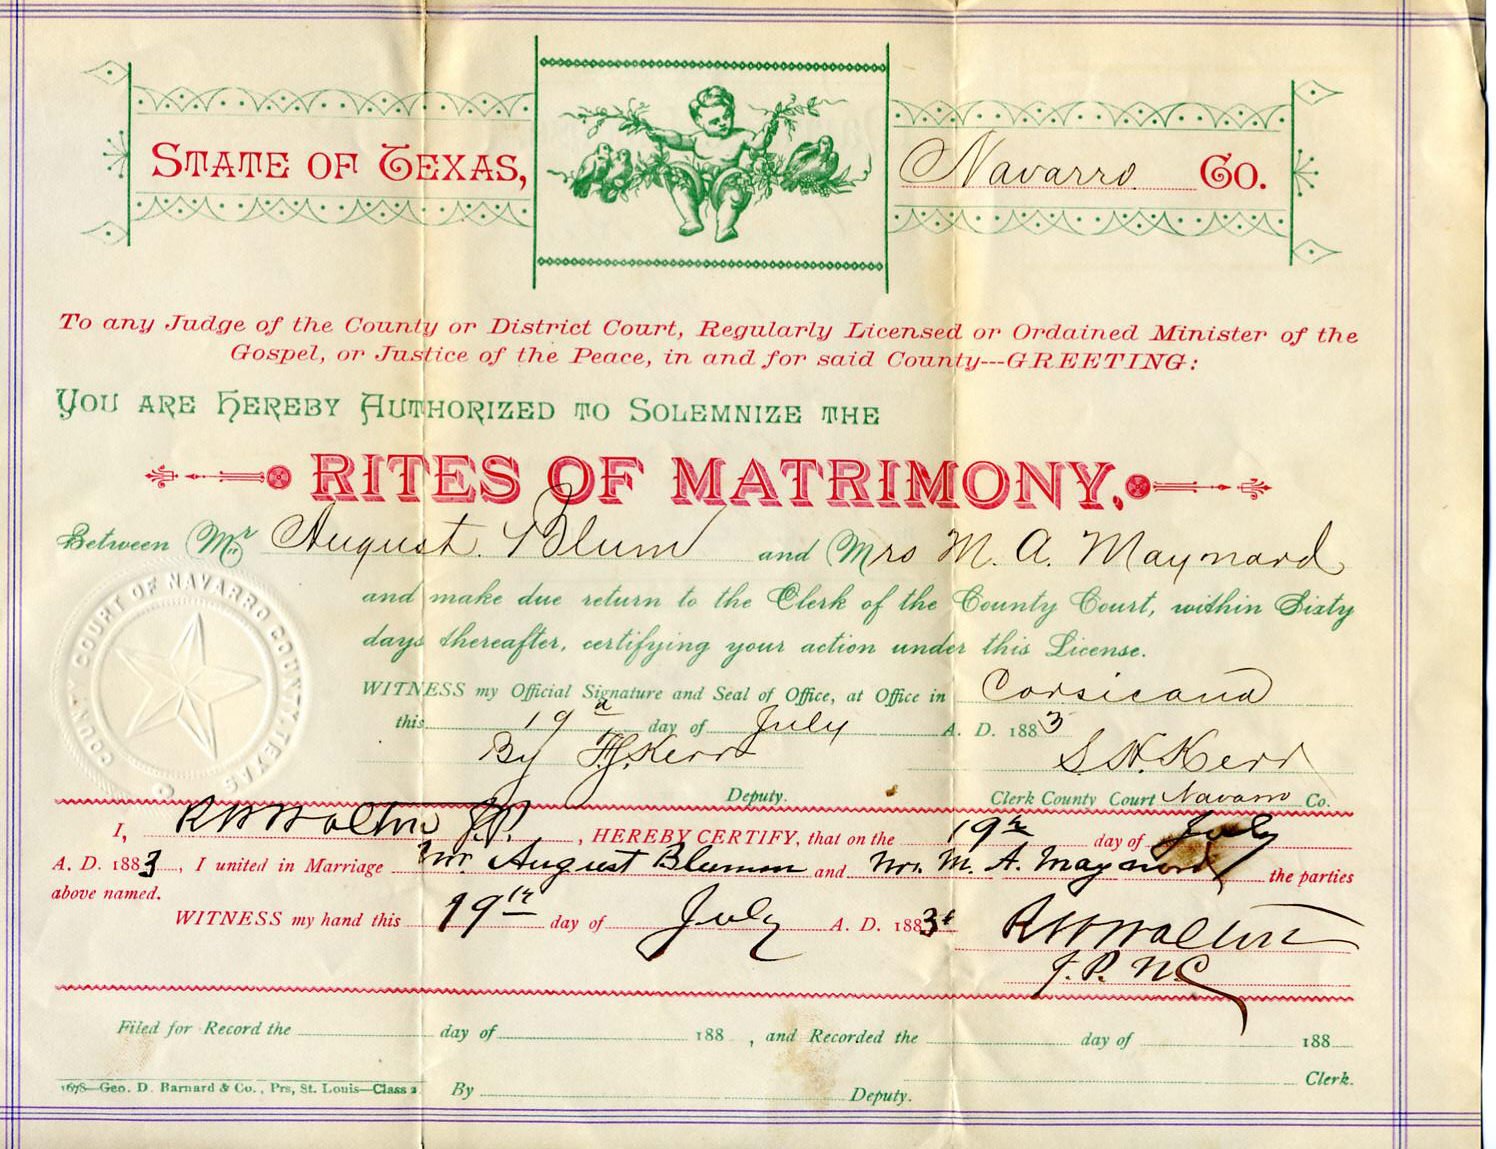 STATE OF TEXAS, Navarro Co.
To any Judge of the County or District Court, Regularly Licensed or Ordained Minister of the
Gospel, or Justice of the Peace, in and for said County---GREETING:
YOU ARE HEREBY AUTHORIZED TO SOLEMNIZE THE
RITES OF MATRIMONY,
Between Mr August Blum and Mrs M. A. Maynard
and make due return to the Clerk of the County Court, within Sixty
days thereafter, certifying your action under this License.
COUNTY COURT OF NAVARRO COUNTY, TEXAS
WITNESS my Official Signature and Seal of Office, at Office in Corsicana
this 19 day of July A. D. 1883
By Kerr S. H. Kerr
Deputy. Clerk County Court Navarro Co.
I, R W Walton J.P., HEREBY CERTIFY, that on the 19th day of July
A. D. 1883, I united in Marriage Mr. August Blumm and Mrs. M. A. Maynard the parties
above named.
WITNESS my hand this 19th day of July A. D. 1883 R W Walton
J. P. N. C.
Filed for Record the day of 188 , and Recorded the day of 188
Clerk.
1678—Geo. D. Barnard & Co., Prs, St. Louis—Class 2 By Deputy.